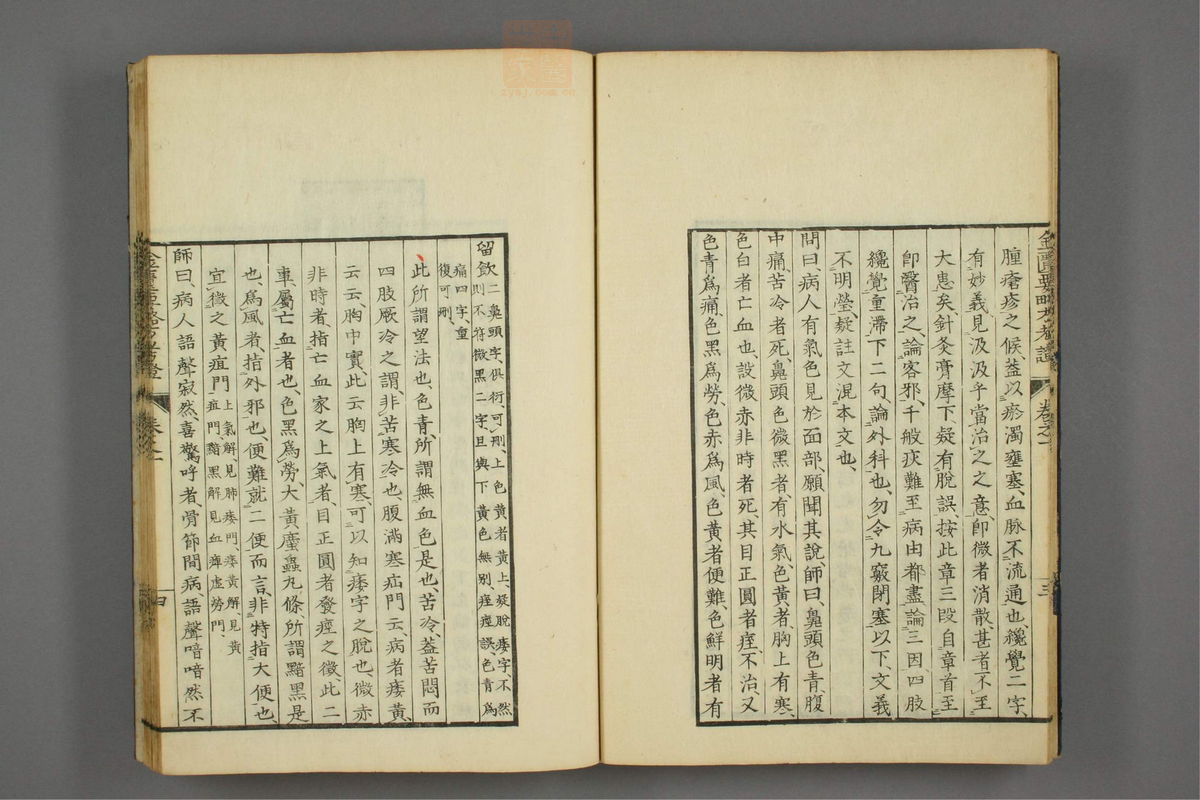 腫瘡疹之候、蓋以瘀濁壅塞、血脉不流通也、纔覺二字、
有妙義見汲汲乎當治之之意、卽微者消散、甚者不至
大患矣、針灸膏摩下、疑有脫誤、按此章三段、自章首至
卽醫治之、論客邪、千般疢難至病由都盡、論三因、四肢
纔覺重滯下二句、論外科也、勿令九竅閉塞以下、文義
不明瑩、疑註文混本文也、
問曰、病人有氣色見於面部、願聞其說、師曰、鼻頭色青、腹
中痛、苦冷者死、鼻頭色微黑者、有水氣、色黃者、胸上有寒、
色白者、亡血也、設微赤非時者死、其目正圓者、痓、不治、又
色青爲痛、色黑爲勞、色赤爲風、色黃者便難、色鮮明者有
留飲、二鼻頭字、俱衍、可刪、上色黃者黃上、疑脫痿字、不然
則不符、微黑二字、且與下黃色無別、痓誤、色青爲
痛四字、重
復可刪、
此所謂望法也、色青、所謂無血色是也、苦冷、蓋苦悶而
四肢厥冷之謂、非苦寒冷也、腹滿寒疝門云、病者痿黃、
云云、胸中寒實、此云胸上有寒、可以知痿字之脫也、微赤
非時者、指亡血家之上氣者、目正圓者、發痓之徵、此二
車、屬亡血者也、色黑爲勞、大黃䗪蟲丸條、所謂黯黑是
也、爲風者、指外邪也、便難、就二便而言、非特指大便也、
宜徵之黃疸門、上氣解、見肺痿門、痿黃解、見黃
疸門、黯黑解、見血痺虛勞門、
師曰、病人語聲寂然、喜驚呼者、骨節間病、語聲喑喑然不
金匱要略方考證 卷之一 三
卷之一 四